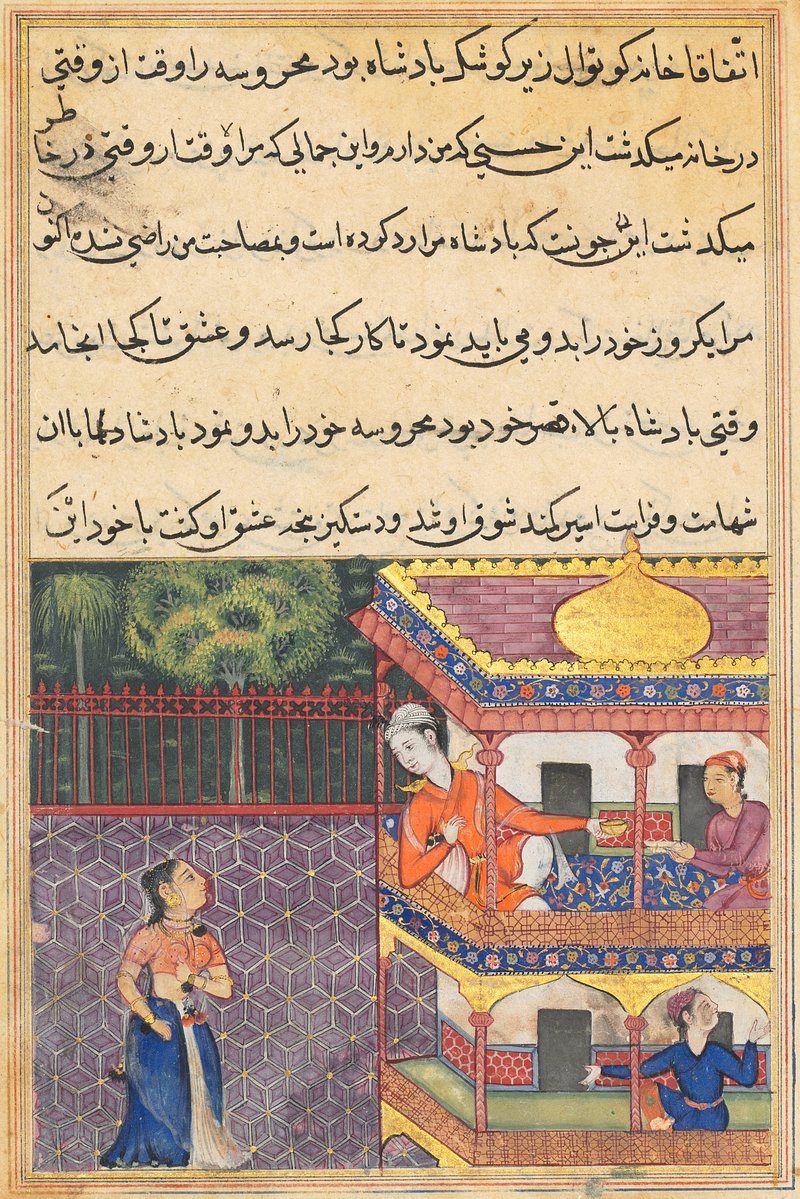 اتّفاقا خانه کوتوال زیر کوشک بادشاه بود محروسه را وقت از وقتی
در خانه میکدشت این حسنی که من دارم و این جمالی که مرا وقت ار وقتی در خاطر
میکدشت این جونست که بادشاه مرا رد کرده است و بمصاحبت من راضی نشده اکنون
مرا یکروز خود را بدو می باید نمود تا کار کجا رسد و عشق تا کجا انجامد
وقتی بادشاه بالاء قصر خود بود محروسه خود را بدو نمود بادشاه باان
شهامت و فراست اسیر کمند شوق او شد و دستکیر بنجه عشق او کشت با خود این